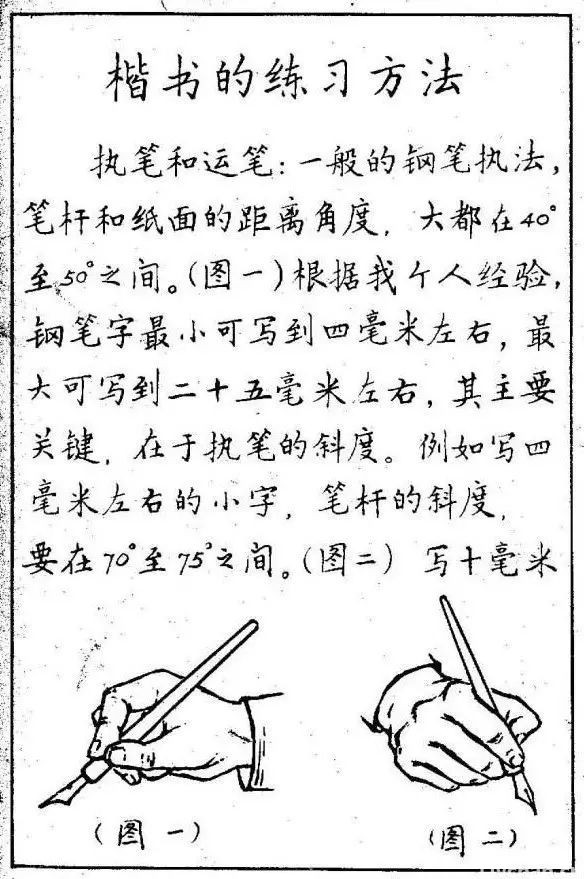 楷书的练习方法
执笔和运笔:一般的钢笔执法,
笔杆和纸面的距离角度,大都在40°
至50°之间。(图一)根据我个人经验,
钢笔字最小可写到四毫米左右,最
大可写到二十五毫米左右,其主要
关键,在于执笔的斜度。例如写四
毫米左右的小字,笔杆的斜度,
要在70°至75°之间。(图二) 写十毫米
(图一)
(图二)